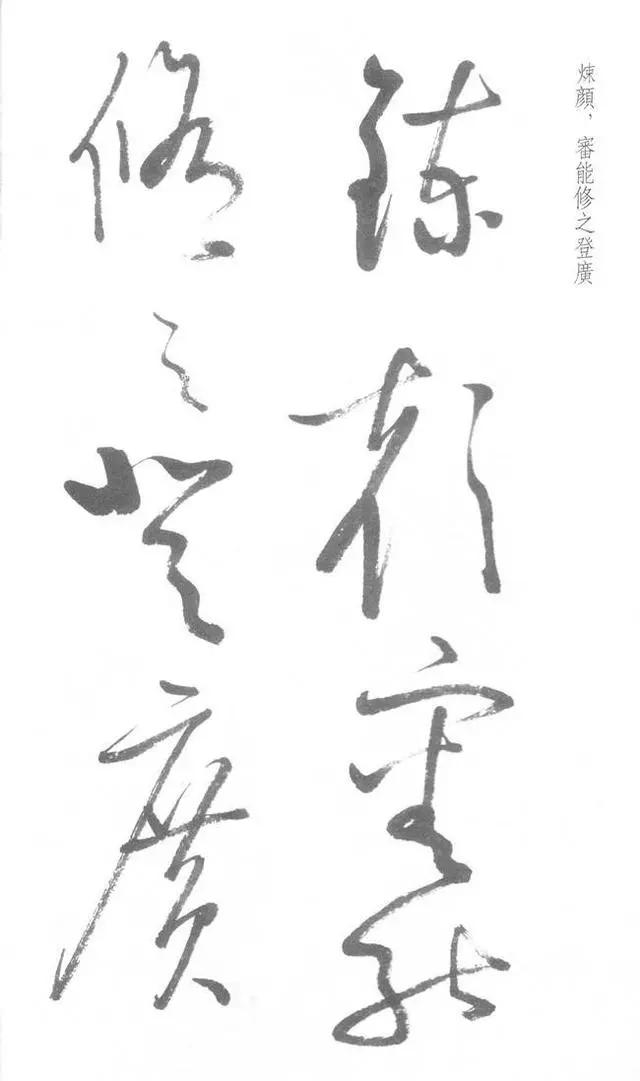 煉顏，審能修之登廣
鍊顏審能
修之登廣